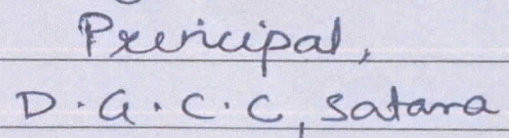 Principal,
D.G.C.C, Satara